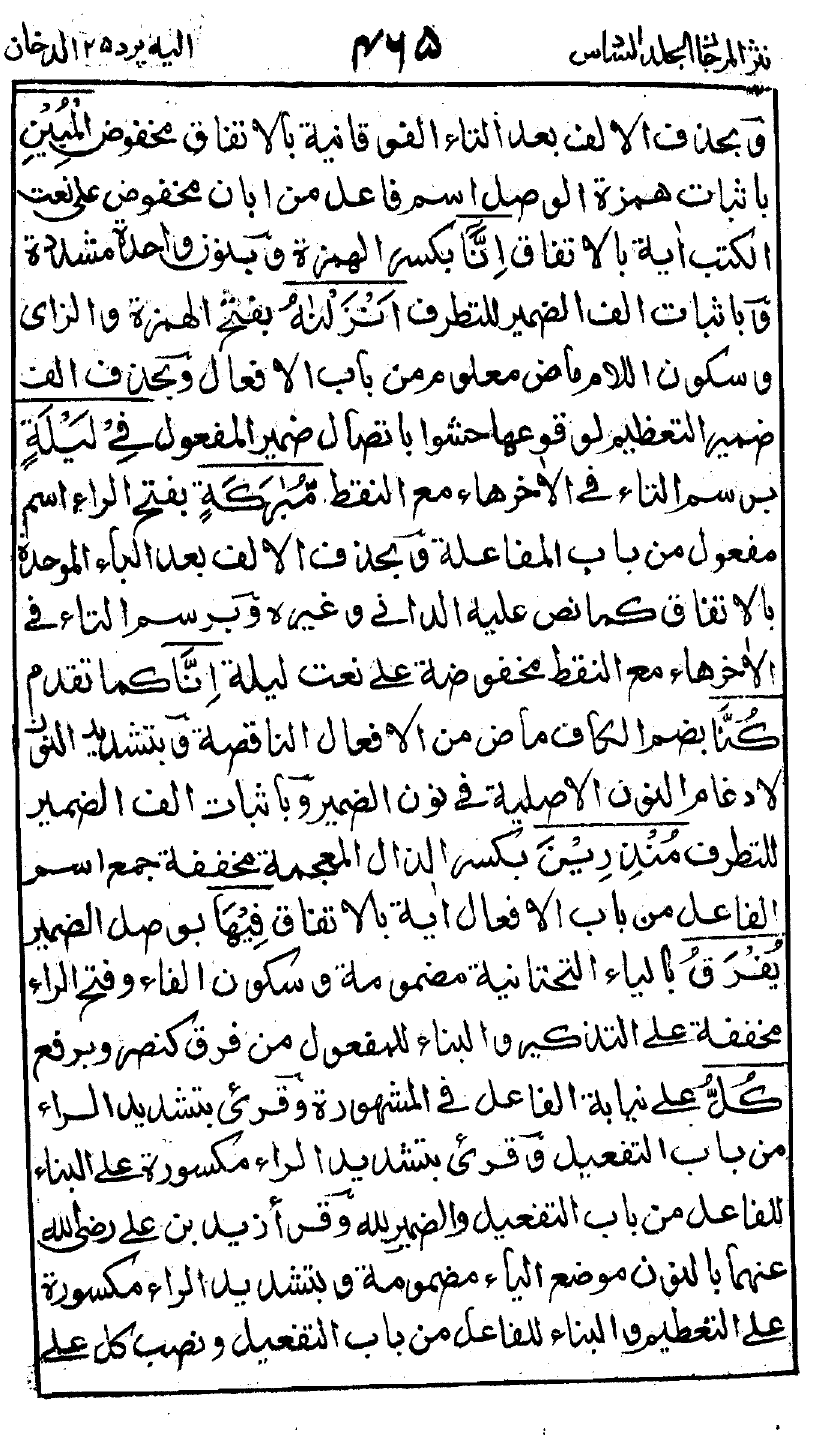 نثر المرجان الجلد السادس ۴۶۵ اليه يرد ۲۵ الدخان
وَبحذف الالف بعد التاء الفوقانية بالاتفاق مخفوض الْمُبِيْنِ
باثبات همزة الوصل اسم فاعل من ابان مخفوض على نعت
الكتب اٰية بالاتفاق اِنَّا بكسر الهمزة وَبنون واحدة مشددة
وَباثبات الف الضمير للتطرف اَنْزَلْنٰهُ بفتح الهمزة والزاى
وسكون اللام ماض معلوم من باب الافعال وَبحذف الف
ضمير التعظيم لوقوعها حشوا باتصال ضمير المفعول فِيْ لَيْلَةٍ
برسم التاء فى الاٰخر هاء مع النقط مُّبٰرَكَةٍ بفتح الراء اسم
مفعول من باب المفاعلة وَبحذف الالف بعد الباء الموحدة
بالاتفاق كما نص عليه الدانى وغيره وَبرسم التاء فى
الاٰخر هاء مع النقط مخفوضة على نعت ليلة اِنَّا كما تقدم
كُنَّا بضم الكاف ماض من الافعال الناقصة وَبتشديد النون
لادغام النون الاصلية فى نون الضمير وَباثبات الف الضمير
للتطرف مُنْذِرِيْنَ بكسر الذال المعجمة مخففة جمع اسم
الفاعل من باب الافعال اٰية بالاتفاق فِيْهَا بوصل الضمير
يُفْرَقُ بالياء التحتانية مضمومة وسكون الفاء وفتح الراء
مخففة على التذكير والبناء للمفعول من فرق كنصر وبرفع
كُلُّ على نيابة الفاعل فى المشهورة وَقرئ بتشديد الراء
من باب التفعيل وَقرئ بتشديد الراء مكسورة على البناء
للفاعل من باب التفعيل والضمير لله وَقرأ زيد بن على رضى الله
عنهما بالنون موضع الياء مضمومة وبتشديد الراء مكسورة
على التعظيم والبناء للفاعل من باب التفعيل ونصب كل على